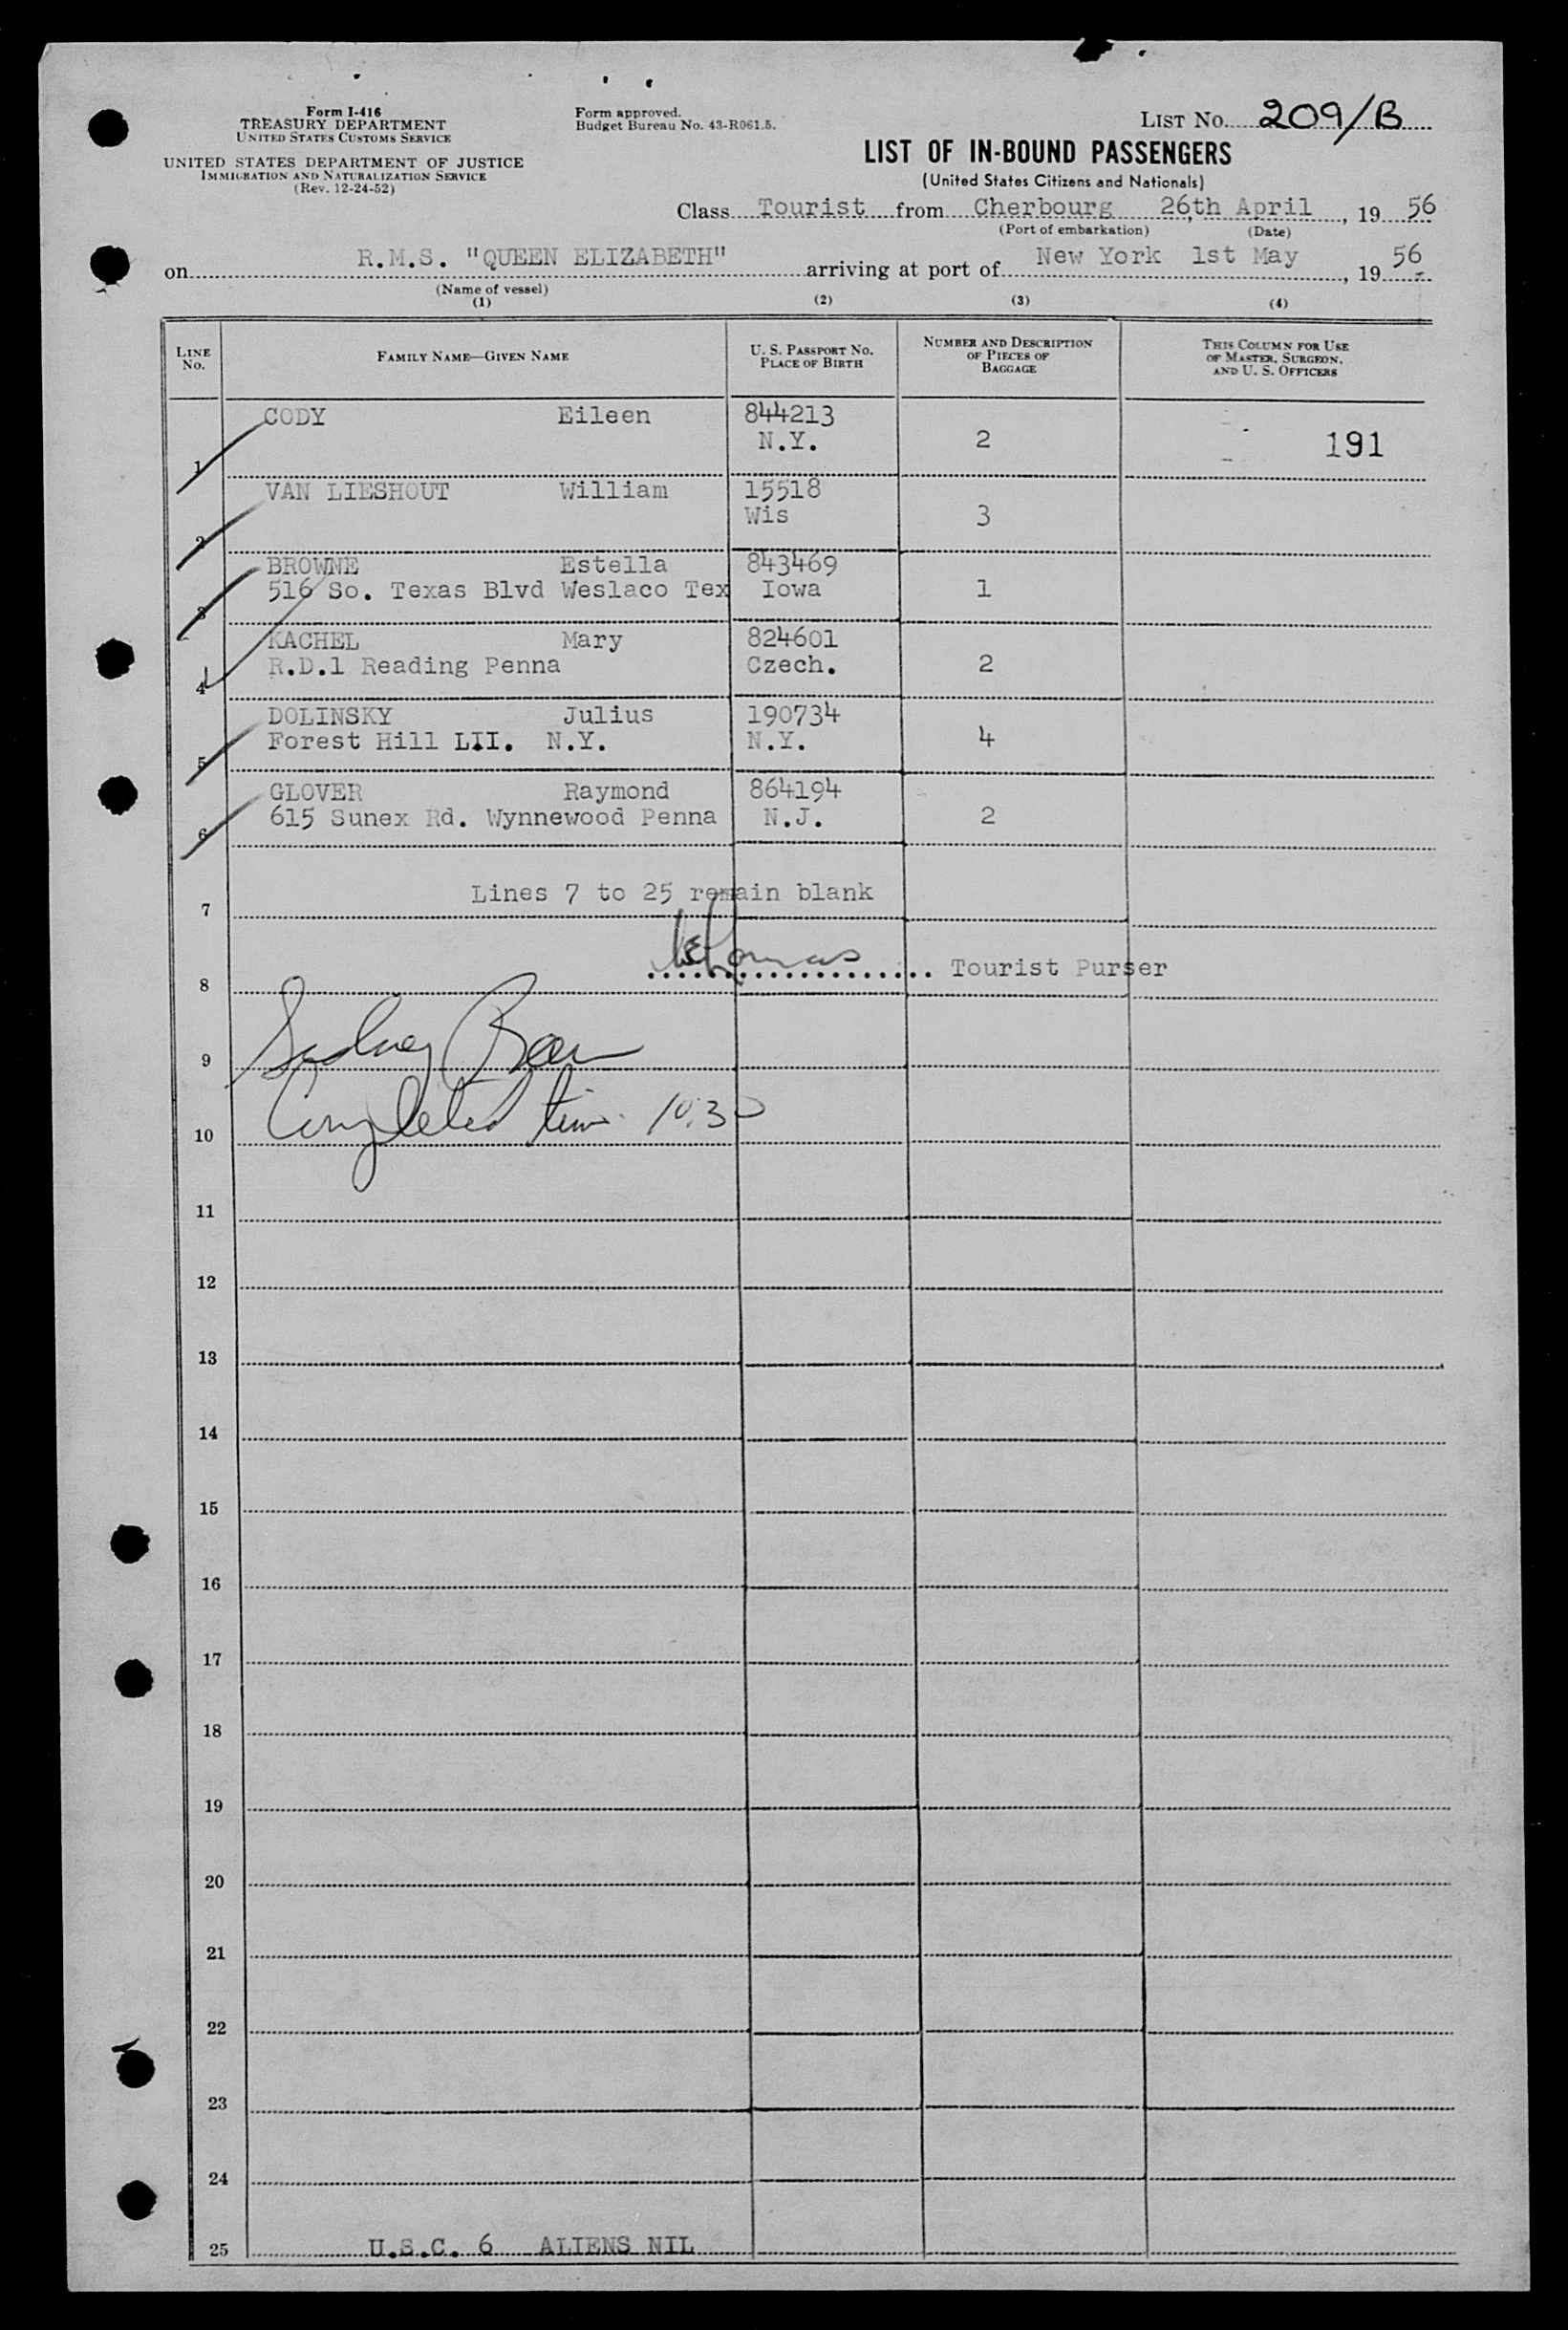 Form I-416
TREASURY DEPARTMENT
UNITED STATES CUSTOMS SERVICE
UNITED STATES DEPARTMENT OF JUSTICE
IMMIGRATION AND NATURALIZATION SERVICE
(Rev. 12-24-52)
Form approved.
Budget Bureau No. 43-R061.5.
LIST No. 209/B
LIST OF IN-BOUND PASSENGERS
(United States Citizens and Nationals)
Class Tourist from Cherbourg 26th April, 19 56
(Port of embarkation) (Date)
on R.M.S. "QUEEN ELIZABETH" arriving at port of New York 1st May, 19 56
(Name of vessel)
(1) (2) (3) (4)
LINE No. FAMILY NAME—GIVEN NAME U. S. PASSPORT No. PLACE OF BIRTH NUMBER AND DESCRIPTION OF PIECES OF BAGGAGE THIS COLUMN FOR USE OF MASTER, SURGEON, AND U. S. OFFICERS
CODY Eileen 844213
1 N.Y. 2 191
VAN LIESHOUT William 15518
2 Wis 3
BROWNE Estella 843469
3 516 So. Texas Blvd Weslaco Tex Iowa 1
KACHEL Mary 824601
4 R.D.1 Reading Penna Czech. 2
DOLINSKY Julius 190734
5 Forest Hill LII. N.Y. N.Y. 4
GLOVER Raymond 864194
6 615 Sunex Rd. Wynnewood Penna N.J. 2
Lines 7 to 25 remain blank
7
8 Tourist Purser
9
10 Completed time 10:30
11
12
13
14
15
16
17
18
19
20
21
22
23
24
25 U.S.C. 6 ALIENS NIL